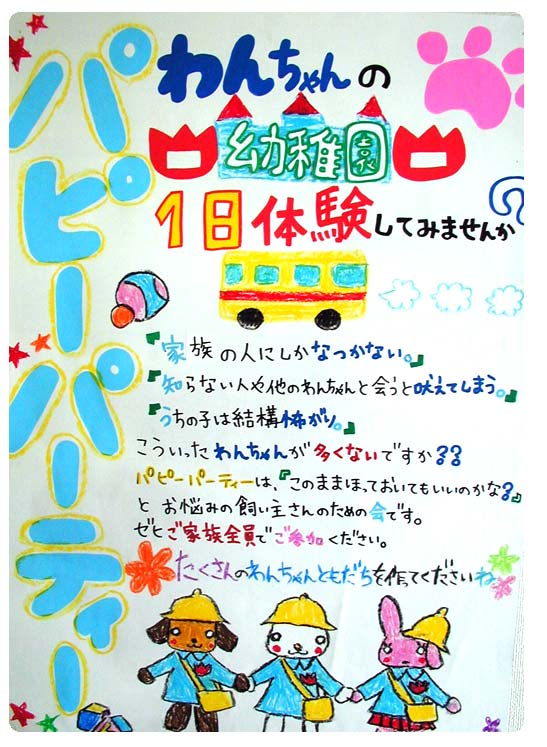 パピーパーティー
わんちゃんの
幼稚園
1日体験してみませんか?
『家族の人にしかなつかない。』
『知らない人や他のわんちゃんと会うと吠えてしまう。』
『うちの子は結構怖がり。』
こういったわんちゃんが多くないですか??
パピーパーティーは、『このままほっておいてもいいのかな?』
と お悩みの飼い主さんのための会です。
ゼヒご家族全員でご参加ください。
たくさんのわんちゃんともだちを作ってくださいね